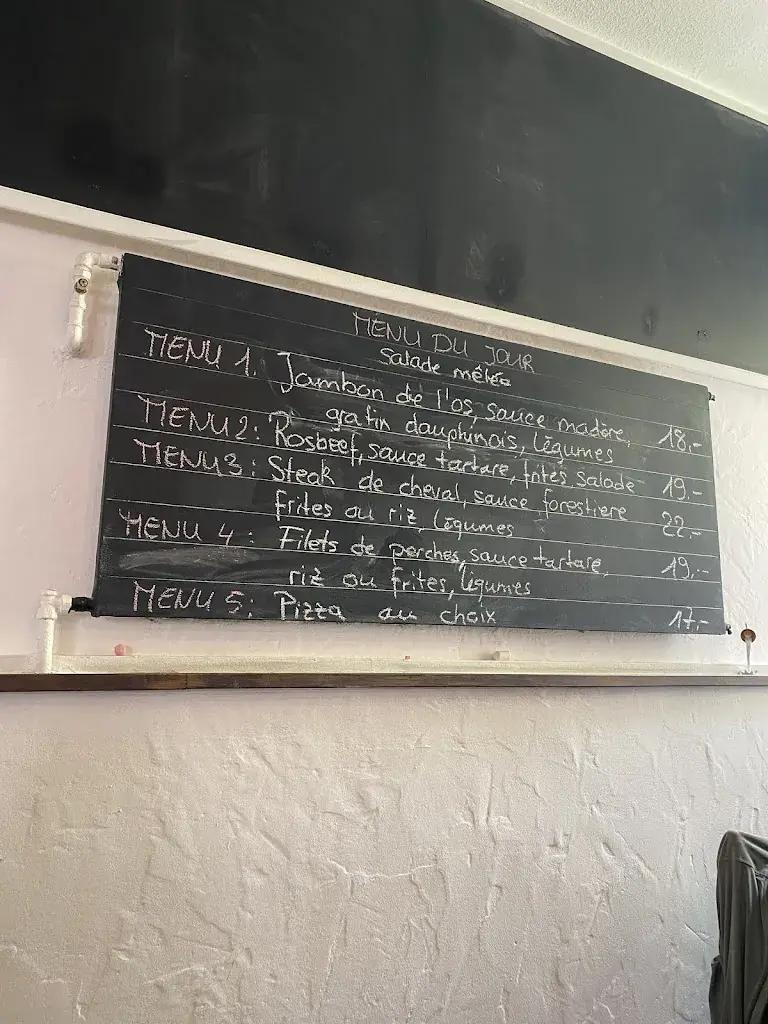 MENU DU JOUR
Salade mêlée
MENU 1. Jambon de l'os, sauce madère,
gratin dauphinois, légumes 18.-
MENU 2: Rosbeef, sauce tartare, frites salade 19.-
MENU 3: Steak de cheval, sauce forestiere
frites ou riz, légumes 22.-
MENU 4: Filets de perches, sauce tartare,
riz ou frites, légumes 19.-
MENU 5: Pizza au choix 17.-